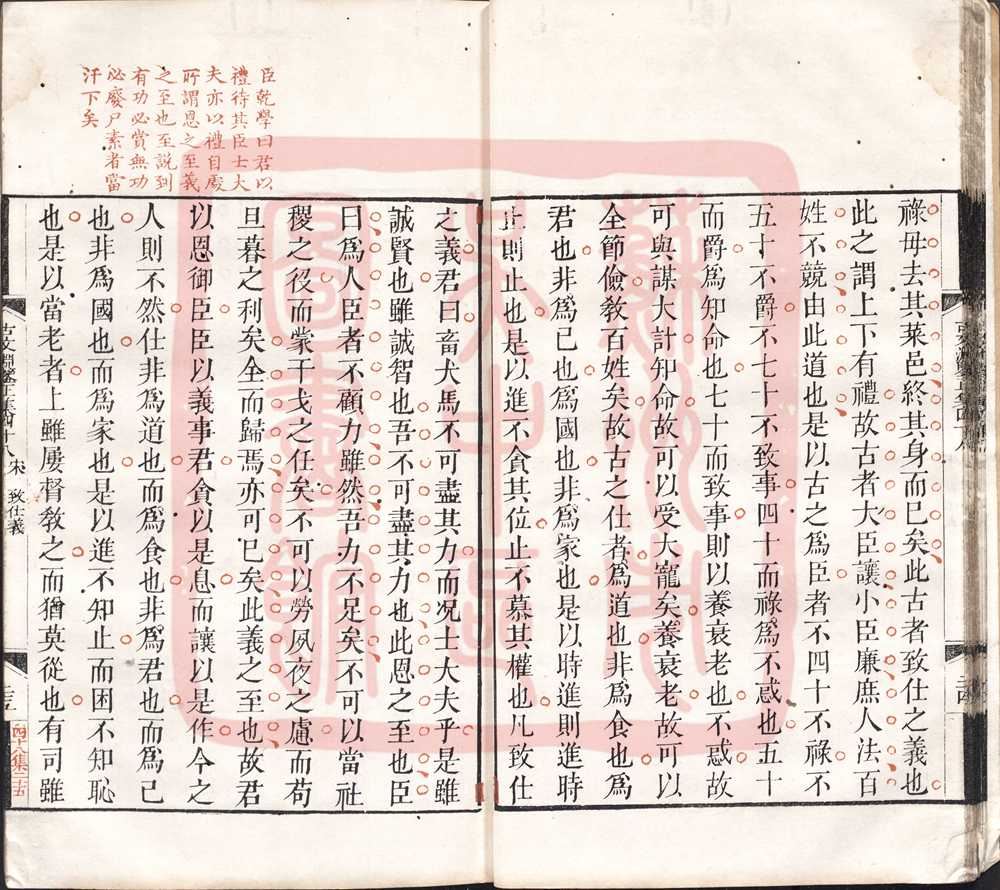 祿毋去其菜邑終其身而已矣此古者致仕之義也
此之謂上下有禮故古者大臣讓小臣廉庶人法百
姓不競由此道也是以古之爲臣者不四十不祿不
五十不爵不七十不致事四十而祿爲不惑也五十
而爵爲知命也七十而致事則以養衰老也不惑故
可與謀大計知命故可以受大寵矣養衰老故可以
全節儉敎百姓矣故古之仕者爲道也非爲食也爲
君也非爲已也爲國也非爲家也是以時進則進時
止則止也是以進不貪其位止不慕其權也凡致仕
臣乾學曰君以
禮待其臣士大
夫亦以禮自處
所謂恩之至義
之至也至説到
有功必賞無功
必廢尸素者當
汗下矣
之義君曰畜犬馬不可盡其力而况士大夫乎是雖
誠賢也雖誠智也吾不可盡其力也此恩之至也臣
曰爲人臣者不顧力雖然吾力不足矣不可以當社
稷之役而蒙干戈之任矣不可以勞夙夜之慮而苟
旦暮之利矣全而歸焉亦可已矣此義之至也故君
以恩御臣臣以義事君貪以是息而讓以是作今之
人則不然仕非爲道也而爲食也非爲君也而爲己
也非爲國也而爲家也是以進不知止而困不知恥
也是以當老者上雖屢督敎之而猶莫從也有司雖
古文淵鑒正集四十八 宋 致仕義
四十八集二十五